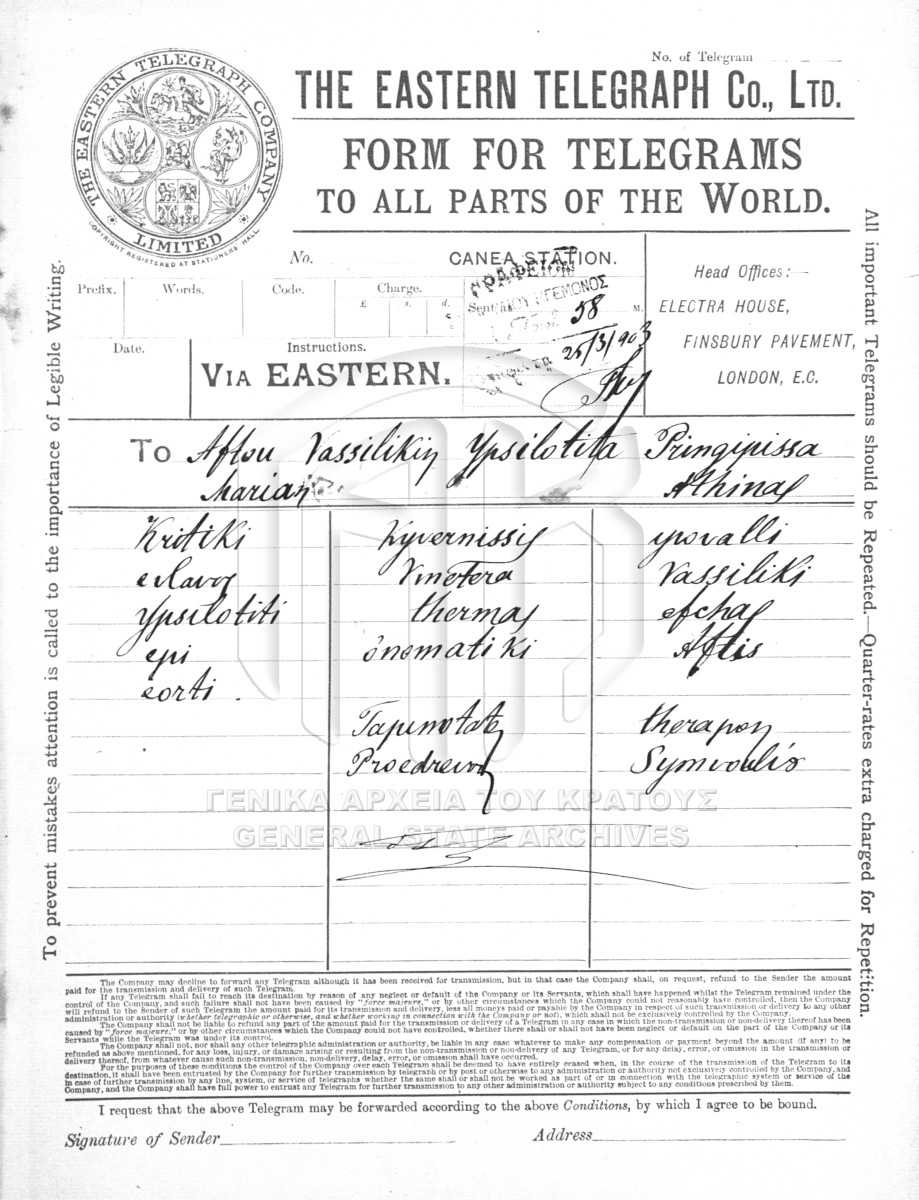 No. of Telegram
THE EASTERN TELEGRAPH Co., LTD.
THE EASTERN TELEGRAPH COMPANY LIMITED
COPYRIGHT REGISTERED AT STATIONERS' HALL
FORM FOR TELEGRAMS
TO ALL PARTS OF THE WORLD.
No. CANEA STATION.
Prefix. Words. Code. Charge.
£ s. d.
Sent M.
ΓΡΑΦΕΙΟΝ
58
25/3/903
Date. Instructions.
VIA EASTERN.
Head Offices:—
ELECTRA HOUSE,
FINSBURY PAVEMENT,
LONDON, E.C.
To Aftou Vassilikin Ypsilotita Pringipissa
Marian Athinas
Kritiki Kyvernissis ypovalli
evlavos Ymetera Vassiliki
Ypsilotiti thermas efchas
epi onomatiki Aftis
eorti .
Tapinotatos therapon
Proedrevon Symvoulos
ΓΕΝΙΚΑ ΑΡΧΕΙΑ ΤΟΥ ΚΡΑΤΟΥΣ
GENERAL STATE ARCHIVES
To prevent mistakes attention is called to the importance of Legible Writing.
All important Telegrams should be Repeated.—Quarter-rates extra charged for Repetition.
The Company may decline to forward any Telegram although it has been received for transmission, but in that case the Company shall, on request, refund to the Sender the amount
paid for the transmission and delivery of such Telegram.
If any Telegram shall fail to reach its destination by reason of any neglect or default of the Company or its Servants, which shall have happened whilst the Telegram remained under the
control of the Company, and such failure shall not have been caused by "force majeure," or by other circumstances which the Company could not reasonably have controlled, then the Company
will refund to the Sender of such Telegram the amount paid for its transmission and delivery, less all moneys paid or payable by the Company in respect of such transmission or delivery to any other
administration or authority (whether telegraphic or otherwise, and whether working in connection with the Company or not), which shall not be exclusively controlled by the Company.
The Company shall not be liable to refund any part of the amount paid for the transmission or delivery of a Telegram in any case in which non-transmission or non-delivery thereof has been
caused by "force majeure," or by other circumstances which the Company could not have controlled, whether there shall or shall not have been neglect or default on the part of the Company or its
Servants while the Telegram was under its control.
The Company shall not, nor shall any other telegraphic administration or authority, be liable in any case whatever to make any compensation or payment beyond the amount (if any) to be
refunded as above mentioned, for any loss, injury, or damage arising or resulting from the non-transmission or non-delivery of any Telegram, or for any delay, error, or omission in the transmission or
delivery thereof, from whatever cause such non-transmission, non-delivery, delay, error, or omission shall have occurred.
For the purposes of these conditions the control of the Company over each Telegram shall be deemed to have entirely ceased when, in the course of the transmission of the Telegram to its
destination, it shall have been entrusted by the Company for further transmission by telegraph or by post or otherwise to any administration or authority not exclusively controlled by the Company, and
in case of further transmission by any line, system, or service of telegraphs whether the same shall or shall not be worked as part of or in connection with the telegraphic system or service of the
Company, and the Company shall have full power to entrust any Telegram for further transmission to any other administration or authority subject to any conditions prescribed by them.
I request that the above Telegram may be forwarded according to the above Conditions, by which I agree to be bound.
Signature of Sender Address